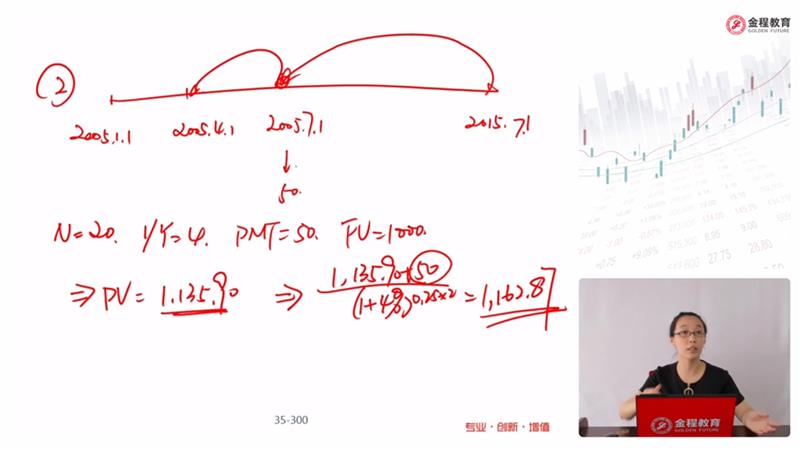 金程教育
GOLDEN FUTURE
(2)
2005.1.1 2005.4.1 2005.7.1 2015.7.1
↓
50.
N=20. I/Y=4. PMT=50. FV=1000.
⇒ PV = 1.135.90 ⇒ 1,135.90+50 / (1+4%)^0.25×2 = 1,162.87
35-300
专业·创新·增值
金程教育
GOLDEN FUTURE